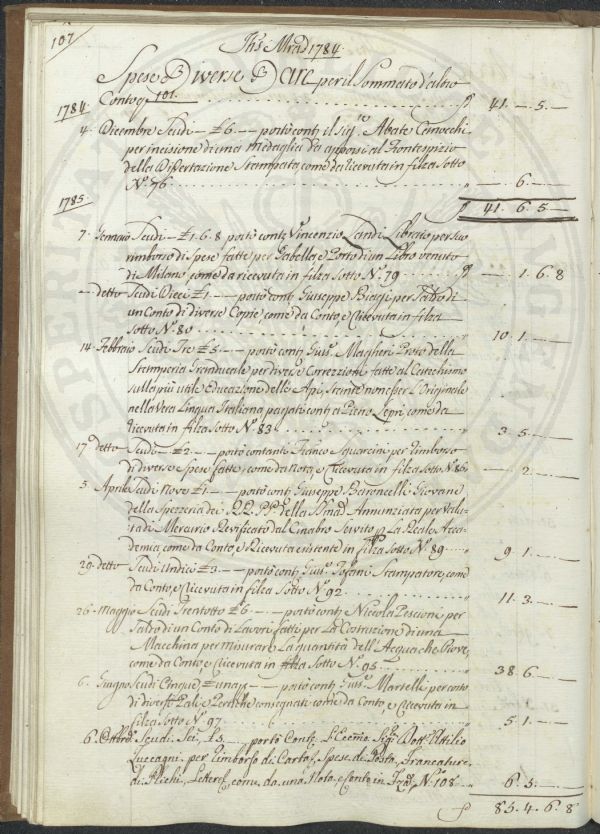 107
Jhs Mra 1784
Spese Diverse Dare per il Sommato d'altro
1784. Conto 101 41. — 5. —
4. Dicembre Scudi — £6. — portò conti il Sig.r Abate Cenocchi
per incisione di una medaglia da apporsi al Frontespizio
della Dissertazione Stampata, come da ricevuta in filza Sotto
N.° 76 — 6. —
1785. 41. 6. 5 —
7. Gennaio Scudi — £1. 6. 8 portò conti Vincenzio Landi Librato per suo
rimborso di Spese fatte per Gabella, e Porto di un Libro venuto
di Milano come da ricevuta in filza Sotto N.° 79 — 1. 6. 8
— detto Scudi Dieci £1. — portò conti Giuseppe Biagi per Saldo di
un Conto di diverse Copie, come da Conto, e Ricevuta in filza
Sotto N.° 80 10. 1. —
14. Febbraio Scudi Tre £5. — portò conti Gius.e Magheri Proto della
Stamperia Granducale per diverse Correzzioni fatte al Catechismo
sulla più utile Educazione delle Api, stante non esser L'Originale
nella Vera Lingua Italiana pagati conti a Pietro Lepri come da
ricevuta in filza Sotto N.° 83 3. 5. —
17. detto Scudo — £2. — portò contanti Franco Squarcini per rimborso
di diverse Spese fatte, come da nota, e Ricevuta in filza Sotto N.° 86 — 2. —
5. Aprile Scudi Nove £1. — portò conti Giuseppe Baroncelli Giovane
della Spezzeria dei RR. PP. della SS.ma Annunziata per Valu-
ta di Mercurio Revificato dal Cinabro Servito p. La Reale Acca-
demia, come da Conto, e Ricevuta esistente in filza Sotto N.° 89 9. 1. —
29. detto Scudi Undici £3. — portò conti Gius.e Tofani Stampatore, come
da Conto, e Ricevuta in filza Sotto N.° 92 11. 3. —
26. Maggio Scudi Trentotto £6. — portò conti Niccola Pescioni per
Saldo di un Conto di Lavori fatti per La Costruzione di una
Macchina per misurare La quantità dell'Acqua che Piove,
come da Conto, e Ricevuta in filza Sotto N.° 95 38. 6. —
6. Giugno Scudi Cinque, £ una — portò conti Gius.e Martelli per costo
di diversi Pali, e Pertiche consegnati come da Conto, e Ricevuta in
filza Sotto N.° 97 5. 1. —
6. Ottbre Scudi Sei, £3. — portò Conti L'Eccmo Sig.r Dott.r Attilio
Zuccagni, per rimborso di Carta, Spese di Posta, Francature,
di Plichi, Lettere, come da una Nota, e Conto, in Filza N.° 108 6. 3. —
85. 4. 6. 8